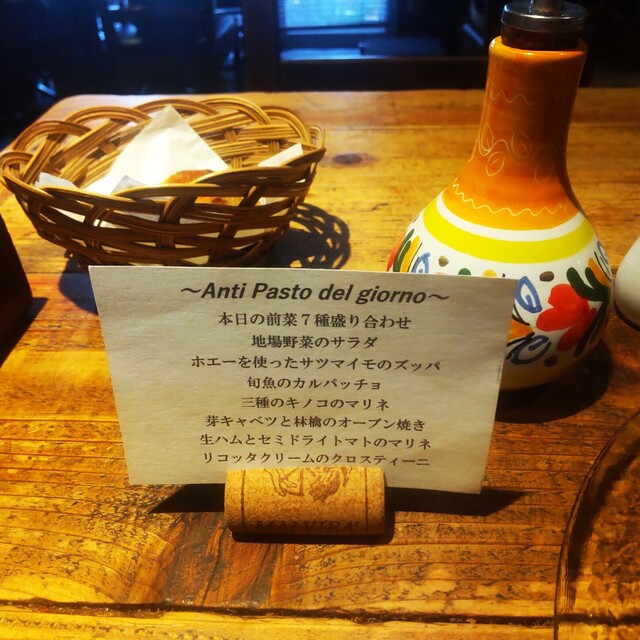 ～Anti Pasto del giorno～
本日の前菜７種盛り合わせ
地場野菜のサラダ
ホエーを使ったサツマイモのズッパ
旬魚のカルパッチョ
三種のキノコのマリネ
芽キャベツと林檎のオーブン焼き
生ハムとセミドライトマトのマリネ
リコッタクリームのクロスティーニ
MALVIRA'